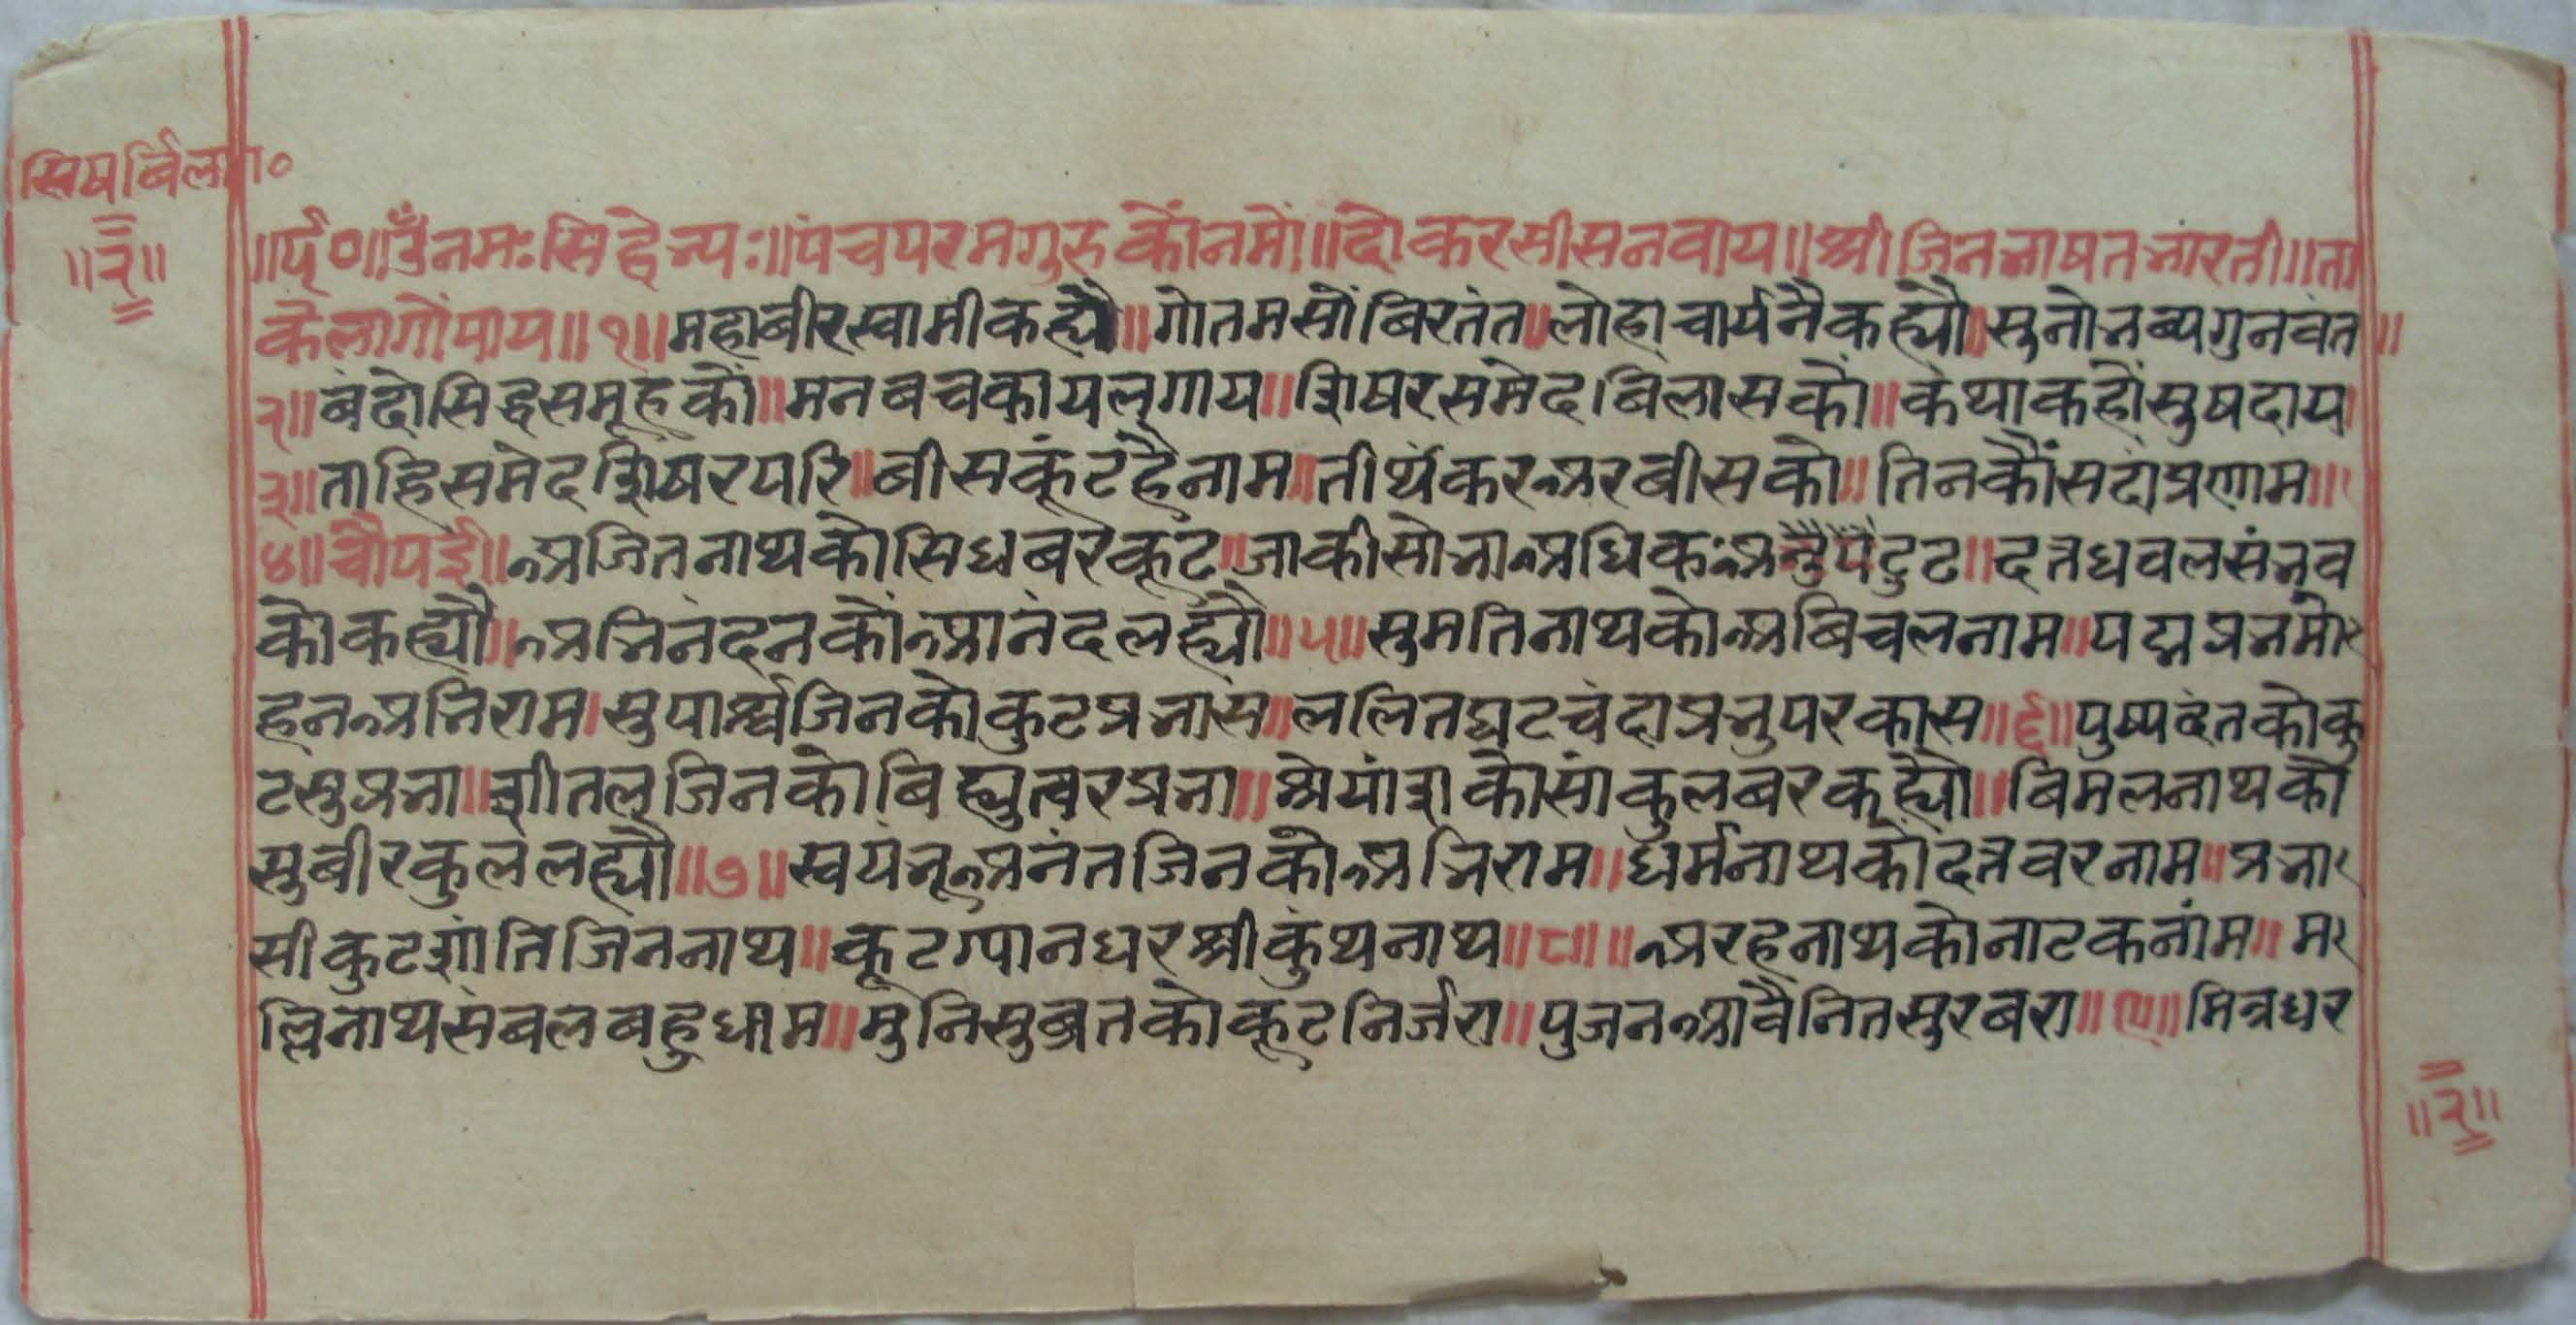 सिषर्बिला०
॥२॥
॥र्ए०॥ॐनमःसिद्धेभ्यः॥पंचपरमगुरुकौंनमों॥दोकरसीसनवाय॥श्रीजिनभाषतभारती॥ता
कैलागौंपाय॥१॥महाबीरस्वामीकह्यौ॥गोतमसौंबिरतंत॥लोहाचार्यनैकह्यौ॥सुनोभब्यगुनवंत॥
२॥बंदोसिद्धसमूहकौं॥मनबचकायलगाय॥शिषरसमेदबिलासकौं॥कथाकहौंसुषदाय॥
३॥ताहिसमेदशिषरपरि॥बीसकूंटहैनाम॥तीर्थंकरअरबीसको॥तिनकौंसदांप्रणाम॥
४॥चौपई॥अजितनाथकोसिधबरकूंट॥जाकीसोभाअधिकअनुपैटुट॥दतधवलसंभव
कोकह्यौ॥अभिनंदनकौंआनंदलह्यौ॥५॥सुमतिनाथकोअबिचलनाम॥पद्मप्रभमो
हनअभिराम॥सुपार्श्वजिनकोकुटप्रभास॥ललितघटचंदाप्रभुपरकास॥६॥पुष्पदंतकोकु
टसुप्रभा॥शीतलजिनकोबिद्युत्वरप्रभा॥श्रेयांशकोसांकुलबरकह्यौ॥बिमलनाथकौ
सुबीरकुललह्यौ॥७॥स्वयंभूअनंतजिनकोअभिराम॥धर्मनाथकोदतवरनाम॥प्रभा
सीकुटशांतिजिननाथ॥कूटग्पानधरश्रीकुंथनाथ॥८॥॥अरहनाथकोनाटकनांम॥म
ल्लिनाथसंबलबहुधाम॥मुनिसुब्रतकोकूटनिर्जरा॥पुजनआवैनितसुरबरा॥९॥मित्रधर
॥२॥